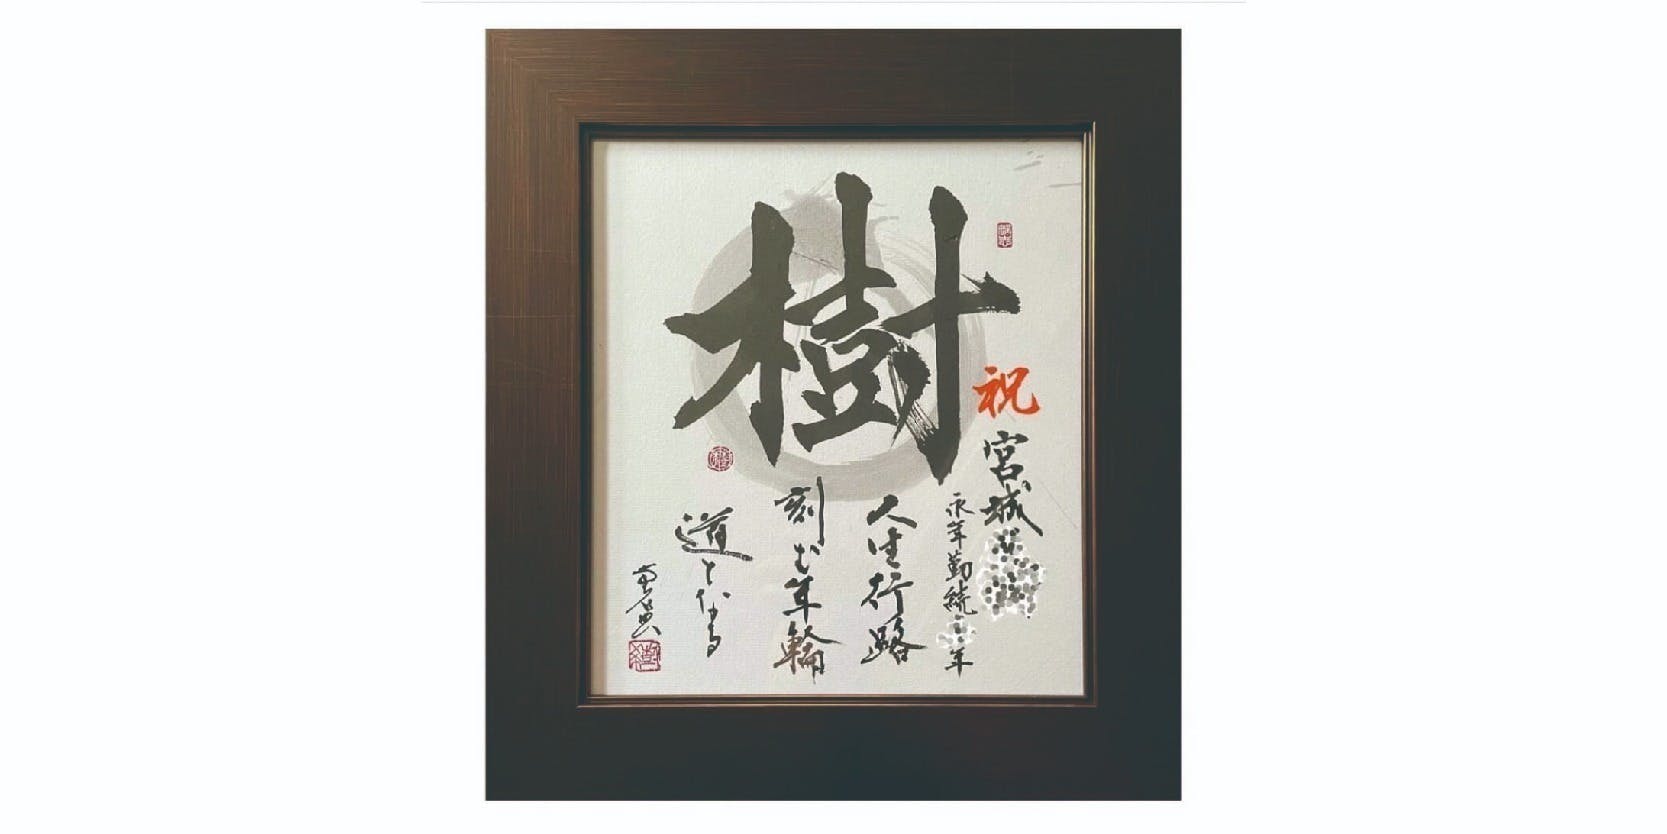 樹
祝
宮城
永年勤続
年
人生行路
刻む年輪
道と伝う